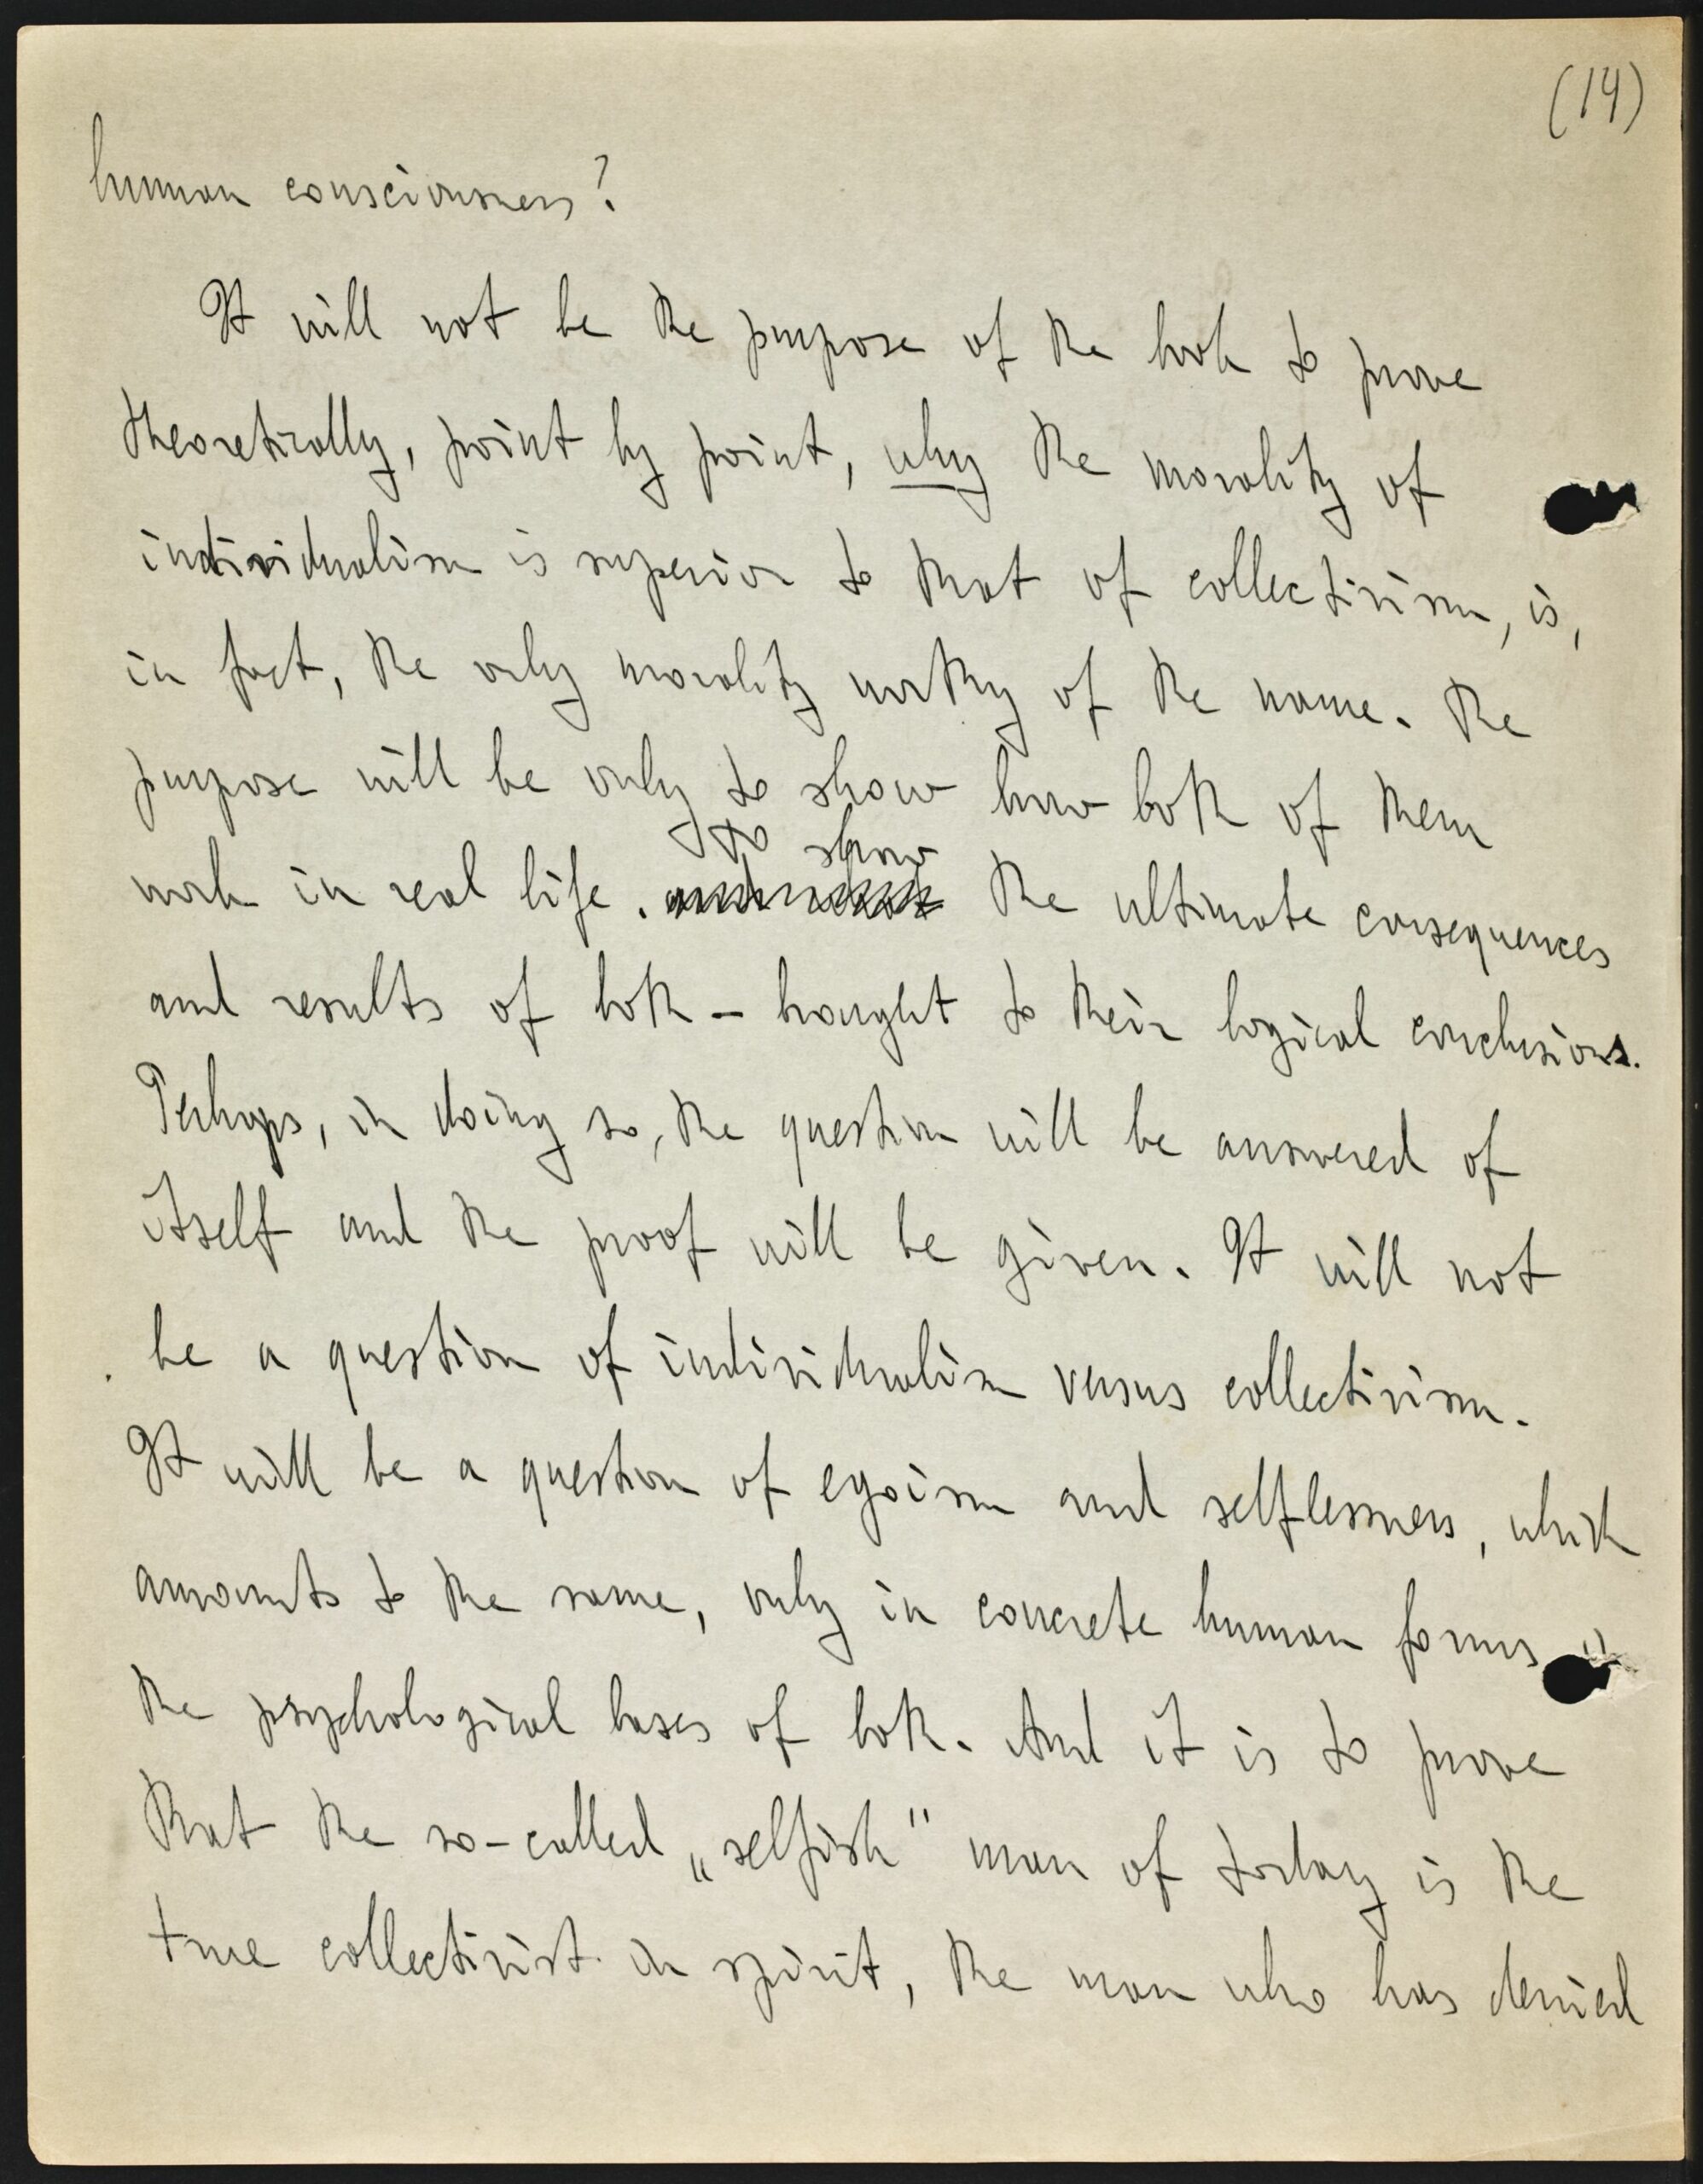 (14)
human consciousness?
It will not be the purpose of the book to prove
theoretically, point by point, why the morality of
individualism is superior to that of collectivism, is,
in fact, the only morality worthy of the name. The
purpose will be only to show how both of them
to show
work in real life. the ultimate consequences
and results of both – brought to their logical conclusions.
Perhaps, in doing so, the question will be answered of
itself and the proof will be given. It will not
be a question of individualism versus collectivism.
It will be a question of egoism and selflessness, which
amounts to the same, only in concrete human forms
the psychological bases of both. And it is to prove
that the so-called „selfish" man of today is the
true collectivist in spirit, the man who has denied